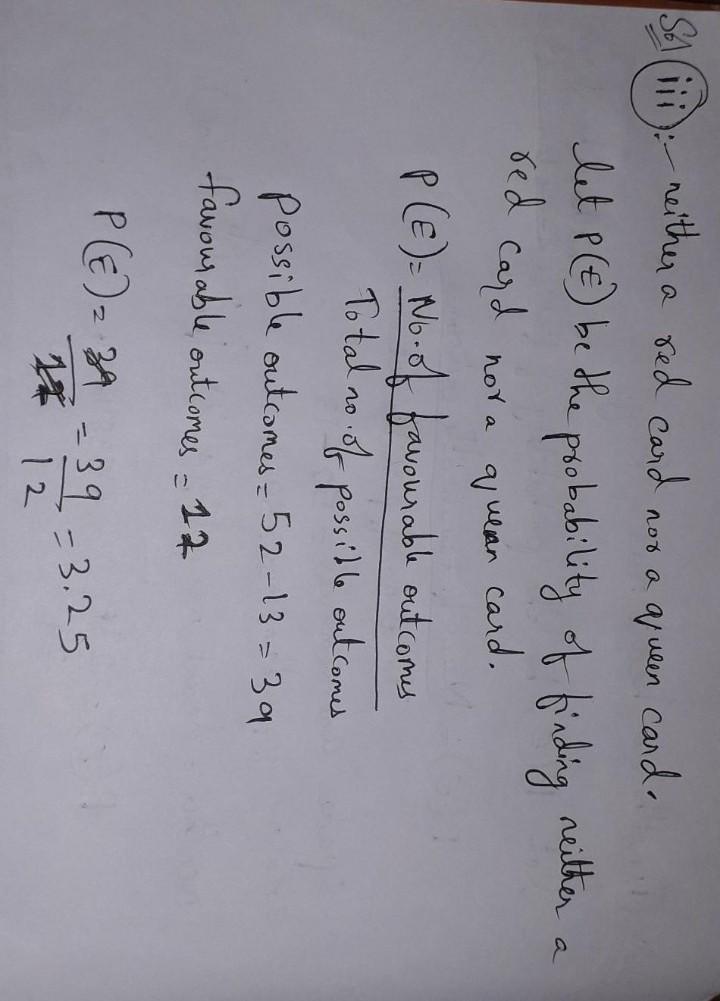 Sol (iii):- neither a red card nor a queen card.
let P(E) be the probability of finding neither a
red card nor a queen card.
P(E) = No. of favourable outcomes
Total no. of possible outcomes
Possible outcomes = 52 - 13 = 39
favourable outcomes = 12
P(E) = 39 = 39 = 3.25
12